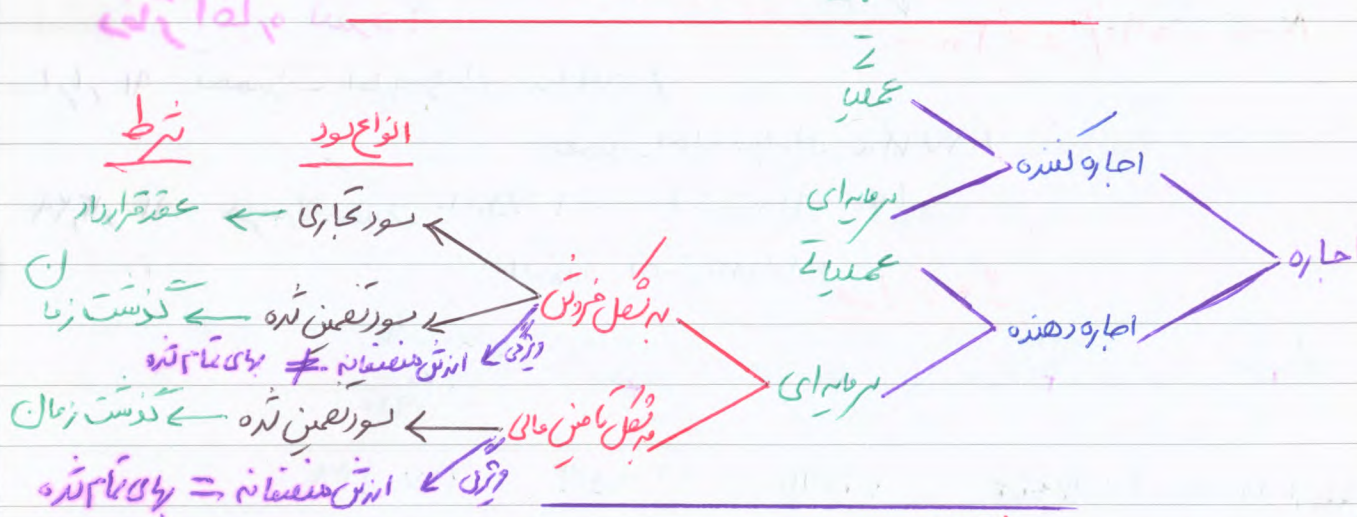 اجاره
اجاره کننده
عملیاتی
سرمایه‌ای
اجاره دهنده
عملیاتی
سرمایه‌ای
به شکل فروش
به شکل تامین مالی
انواع سود
شرط
سود تجاری ← عقد قرارداد
سود تضمین شده ← گذشت زمان
ویژگی ارزش منصفانه ≠ بهای تمام شده
سود تضمین شده ← گذشت زمان
ویژگی ارزش منصفانه = بهای تمام شده